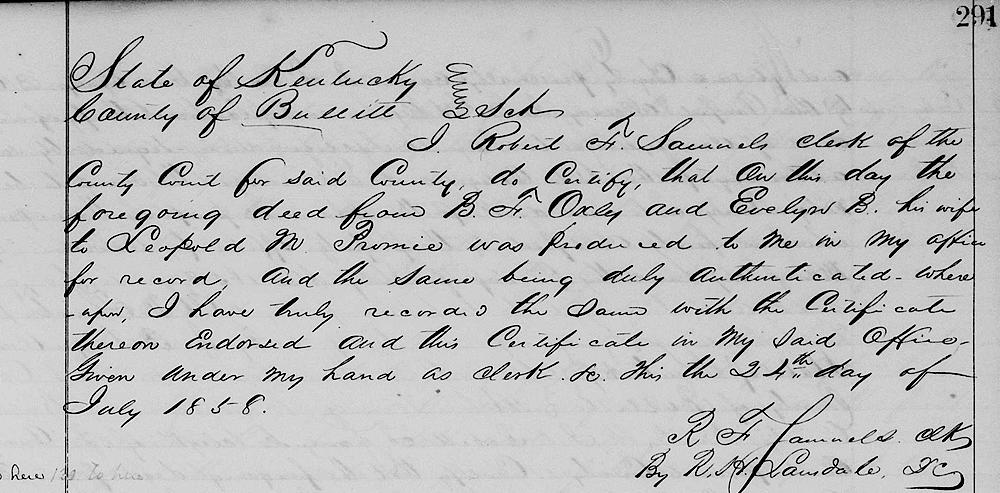 291
State of Kentucky
County of Bullitt } Sct
I. Robert F. Samuels clerk of the
County Court for said County, do Certify, that on this day the
foregoing deed from B. F. Oxley and Evelyn B. his wife
to Leopold M. Promie was produced to me in my office
for record, and the same being duly authenticated- where
-upon, I have truly recorded the same with the Certificate
thereon Endorsed and this Certificate in my said Office-
Given under my hand as clerk &c. this the 24th day of
July 1858.
R. F. Samuels. clk
By R. H. Lansdale, D C
here to here